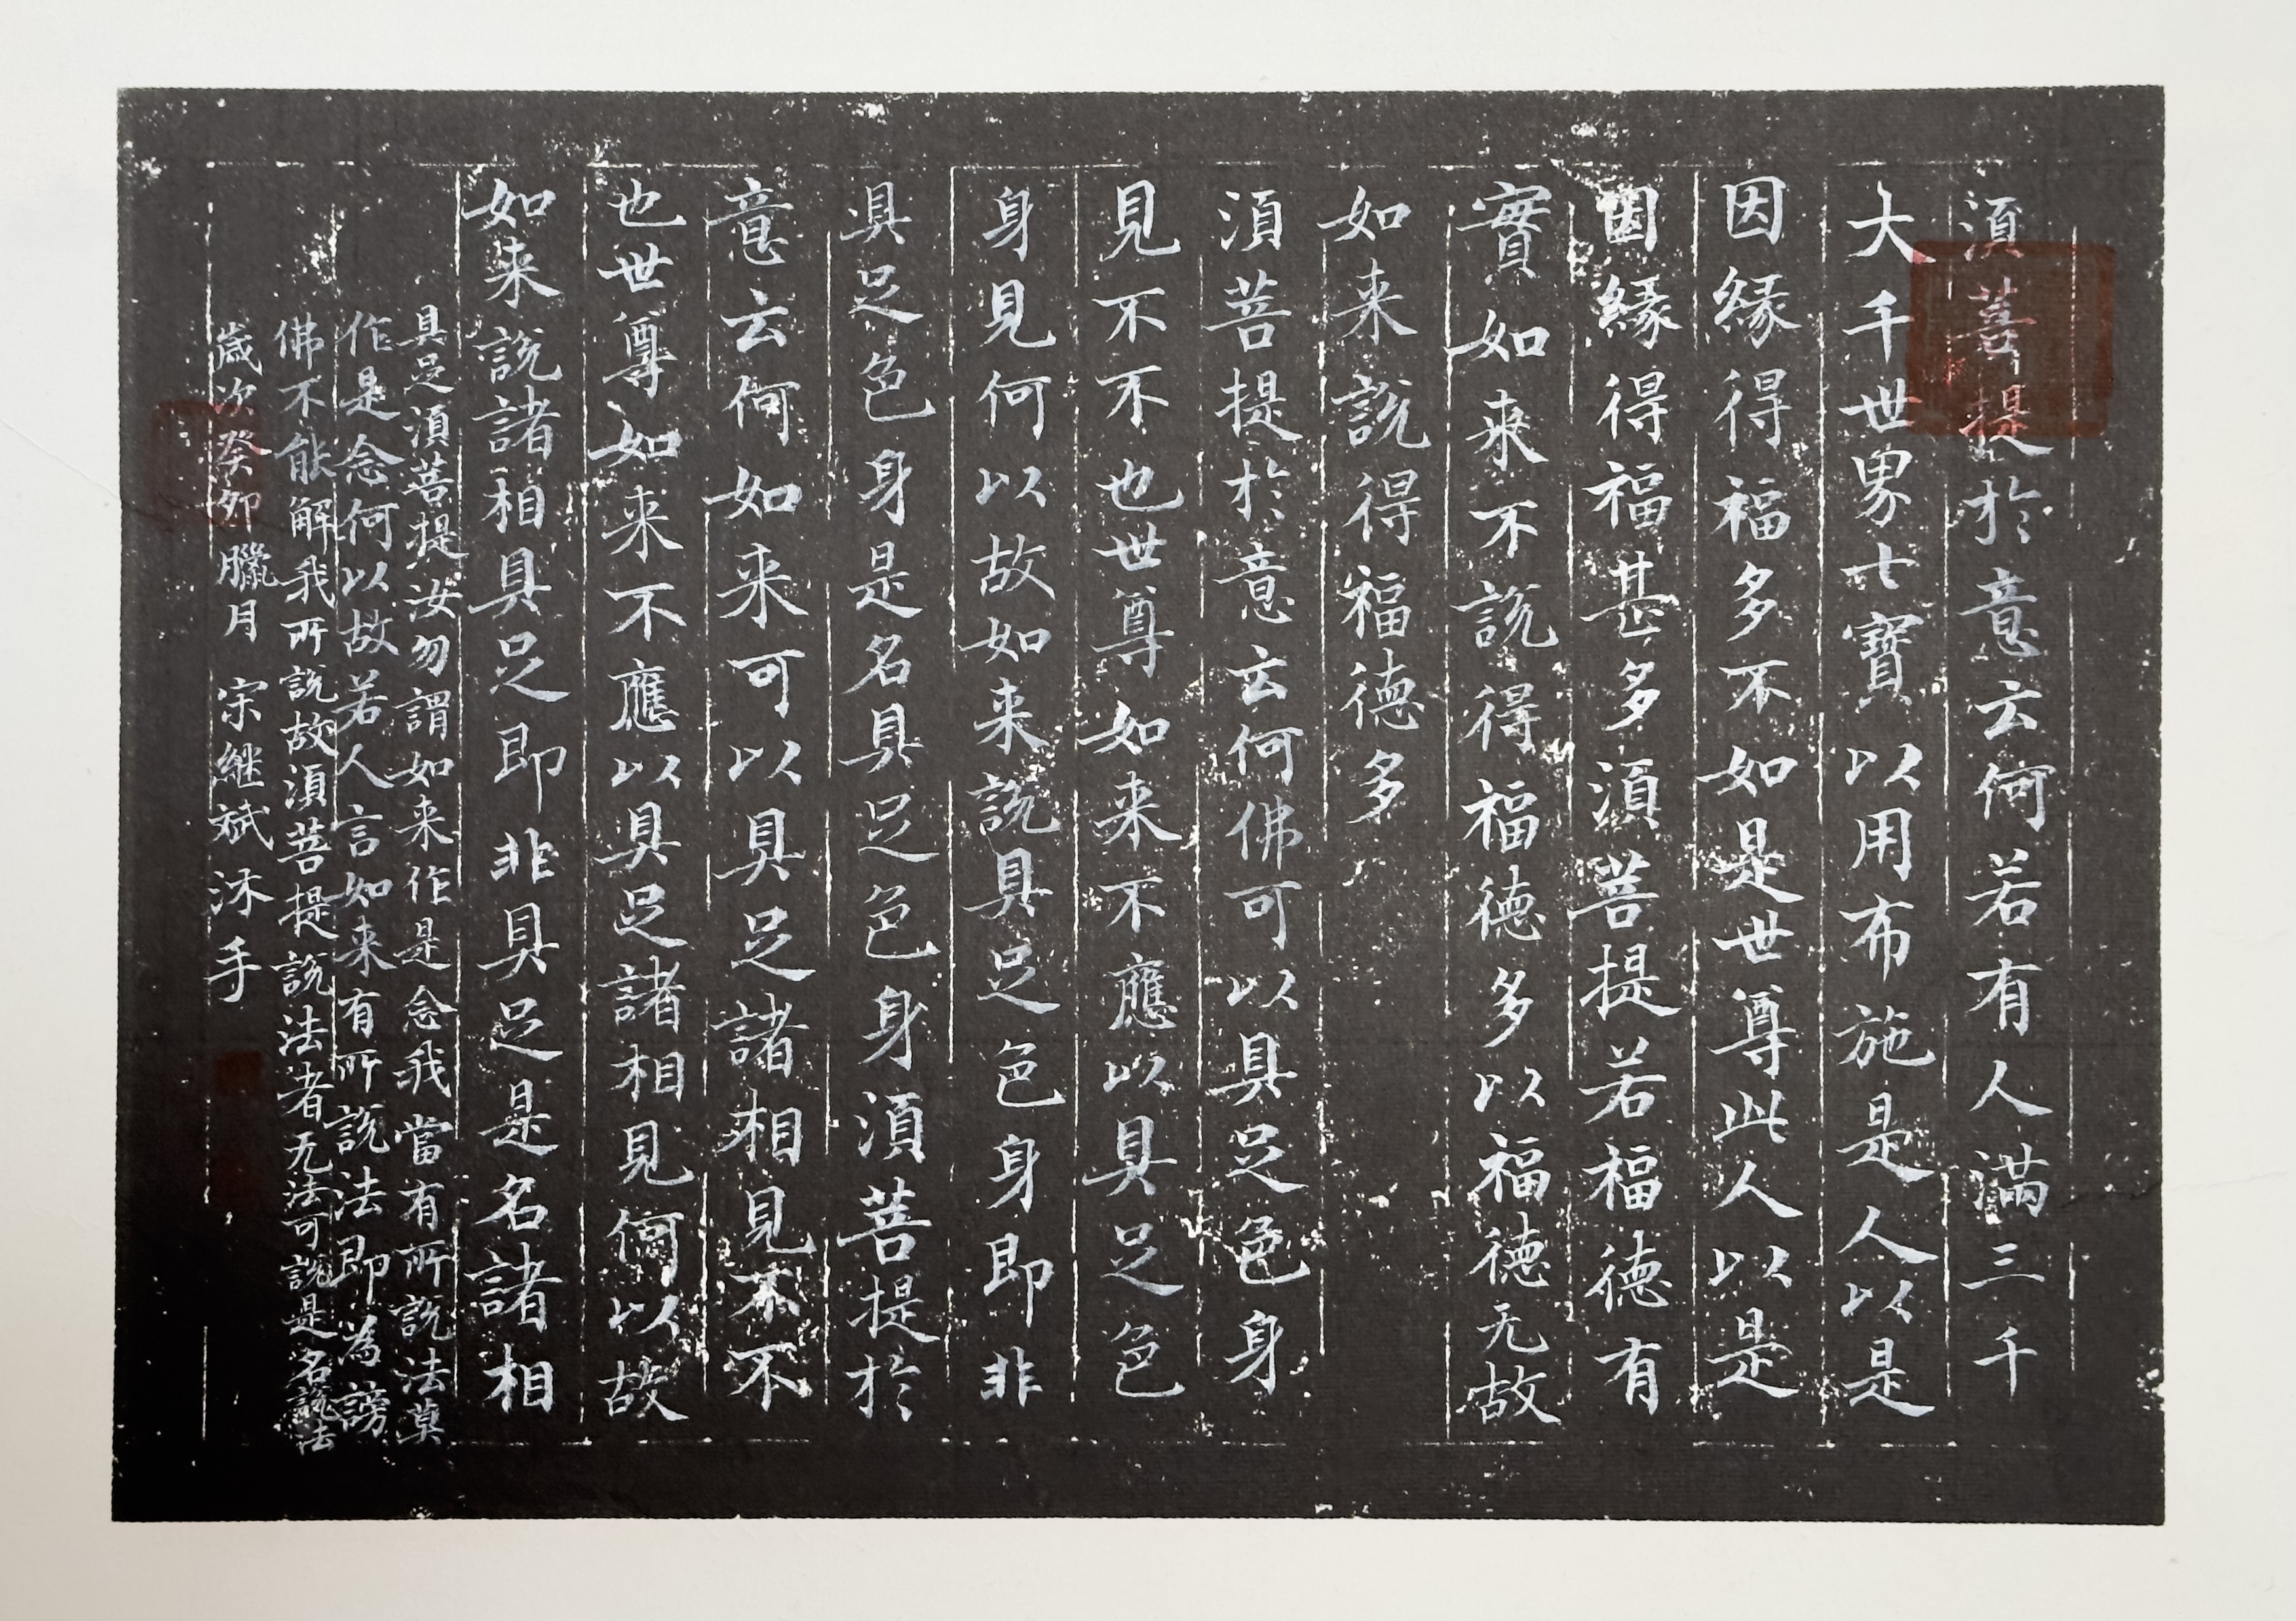 須菩提於意云何若有人滿三千
大千世界七寶以用布施是人以是
因緣得福多不如是世尊此人以是
因緣得福甚多須菩提若福德有
實如来不說得福德多以福德无故
如来說得福德多
須菩提於意云何佛可以具足色身
見不不也世尊如来不應以具足色
身見何以故如来說具足色身即非
具足色身是名具足色身須菩提於
意云何如来可以具足諸相見不不
也世尊如来不應以具足諸相見何以故
如来說諸相具足即非具足是名諸相
具足須菩提汝勿謂如来作是念我當有所說法莫
作是念何以故若人言如来有所說法即為謗
佛不能解我所說故須菩提說法者无法可說是名說法
歲次癸卯臘月 宗继斌沐手